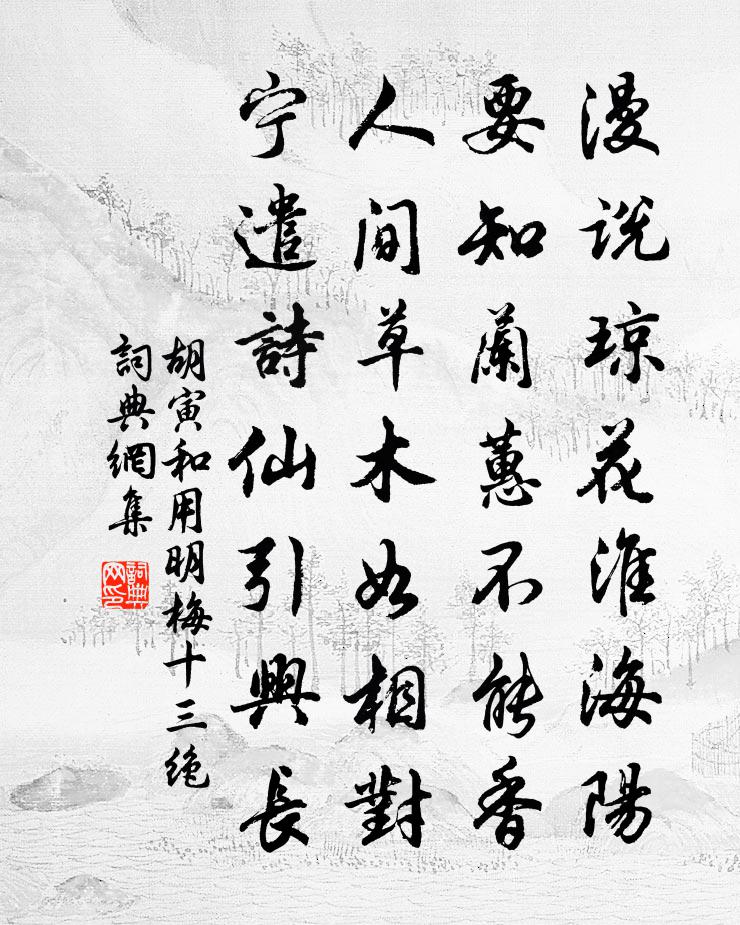 漫说琼花淮海陽
要知蘭蕙不能香
人间草木如相對
宁遣詩仙引興長
胡寅和用明梅十三绝
詞典網集
詞典网印